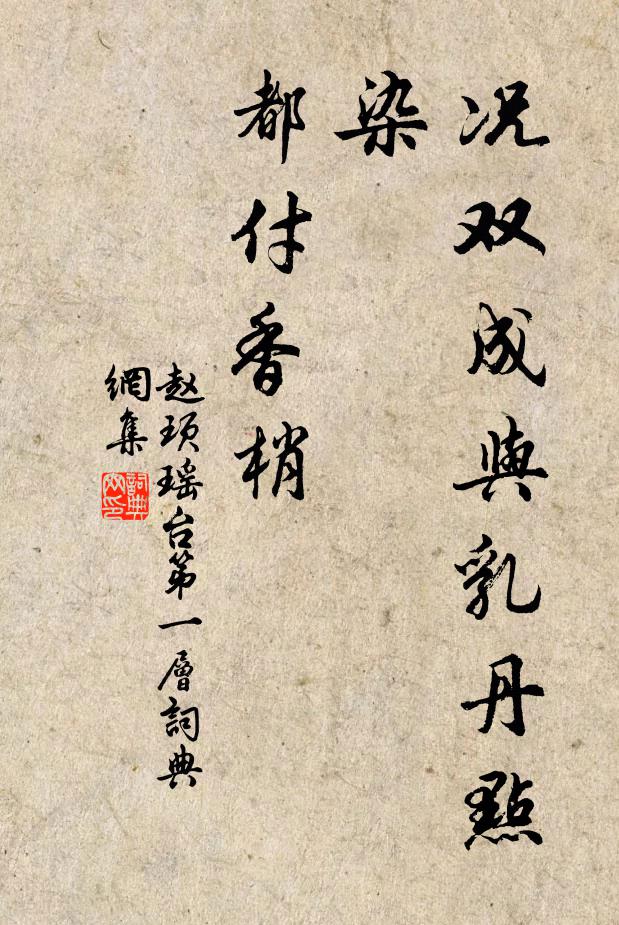 况双成與乳丹點
染
都付香梢
赵頊瑶台第一層詞典
網集
詞典